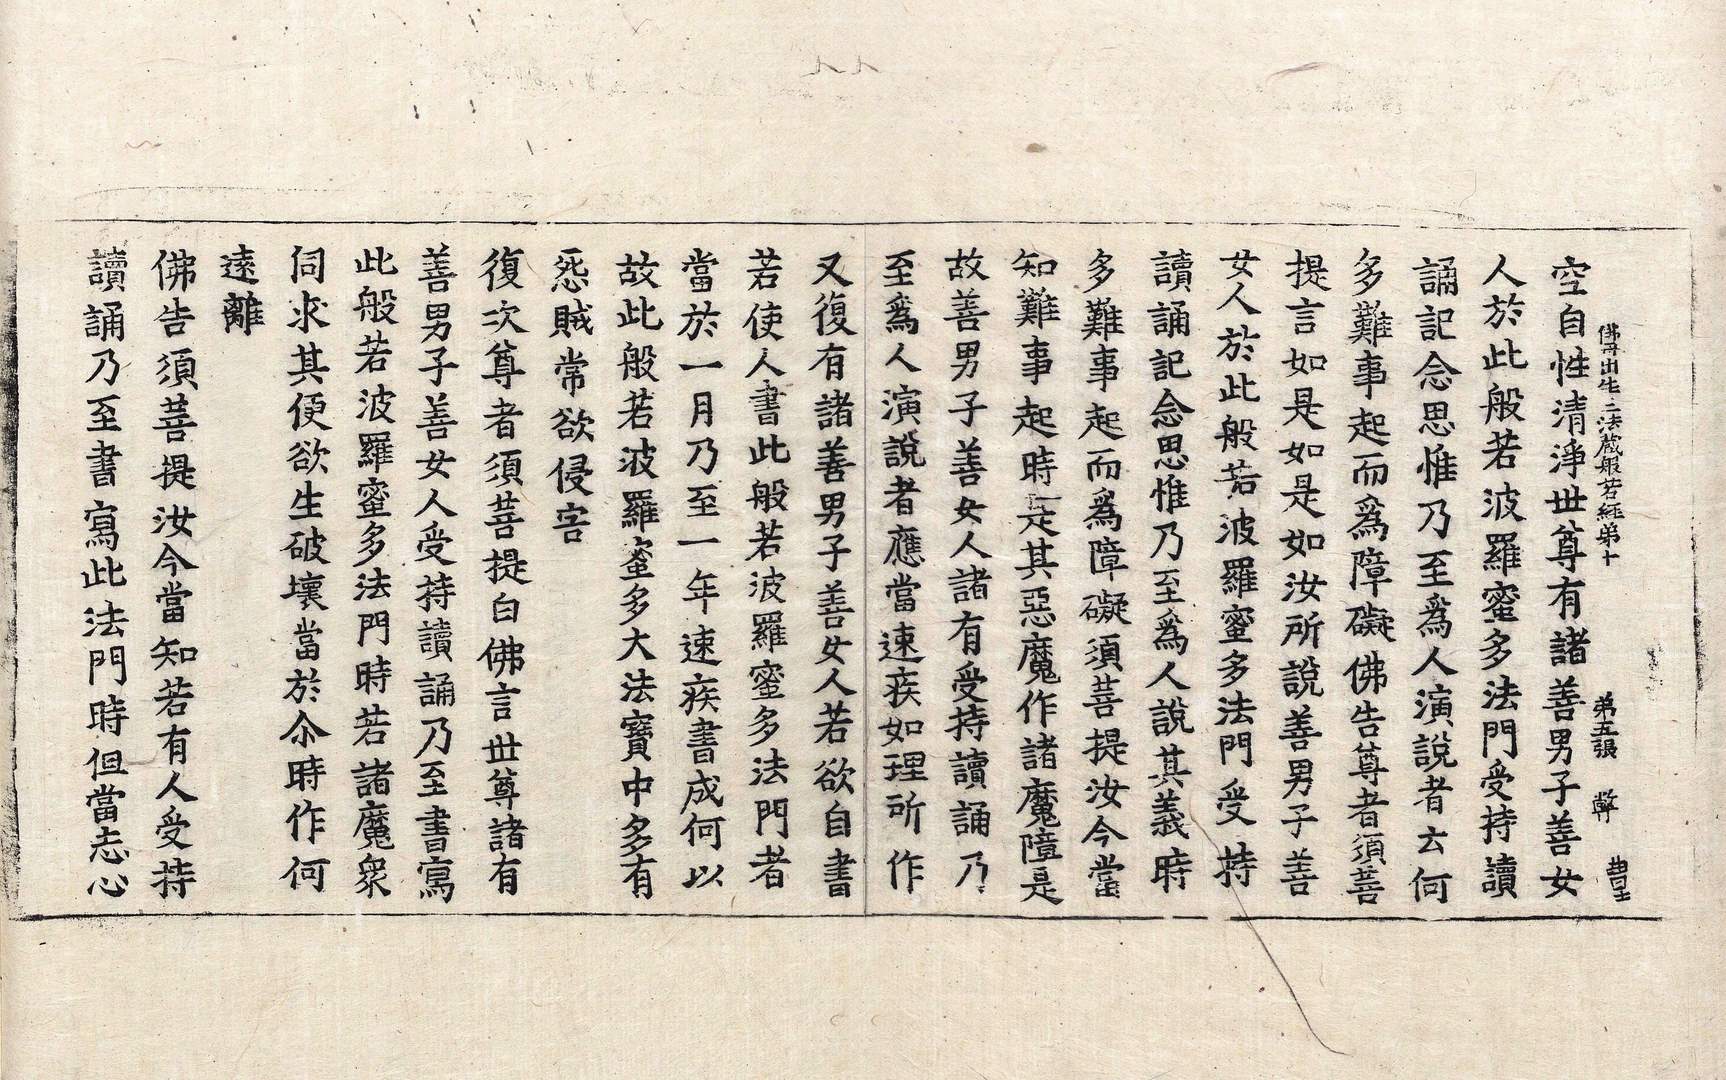 佛母出生三法藏般若經第十 第五張 弊
空自性清淨世尊有諸善男子善女
人於此般若波羅蜜多法門受持讀
誦記念思惟乃至爲人演說者云何
多難事起而爲障礙佛告尊者須菩
提言如是如是如汝所說善男子善
女人於此般若波羅蜜多法門受持
讀誦記念思惟乃至爲人說其義時
多難事起而爲障礙須菩提汝今當
知難事起時是其惡魔作諸魔障是
故善男子善女人諸有受持讀誦乃
至爲人演說者應當速疾如理所作
又復有諸善男子善女人若欲自書
若使人書此般若波羅蜜多法門者
當於一月乃至一年速疾書成何以
故此般若波羅蜜多大法寶中多有
惡賊常欲侵害
復次尊者須菩提白佛言世尊諸有
善男子善女人受持讀誦乃至書寫
此般若波羅蜜多法門時若諸魔衆
伺求其便欲生破壞當於尒時作何
遠離
佛告須菩提汝今當知若有人受持
讀誦乃至書寫此法門時但當志心